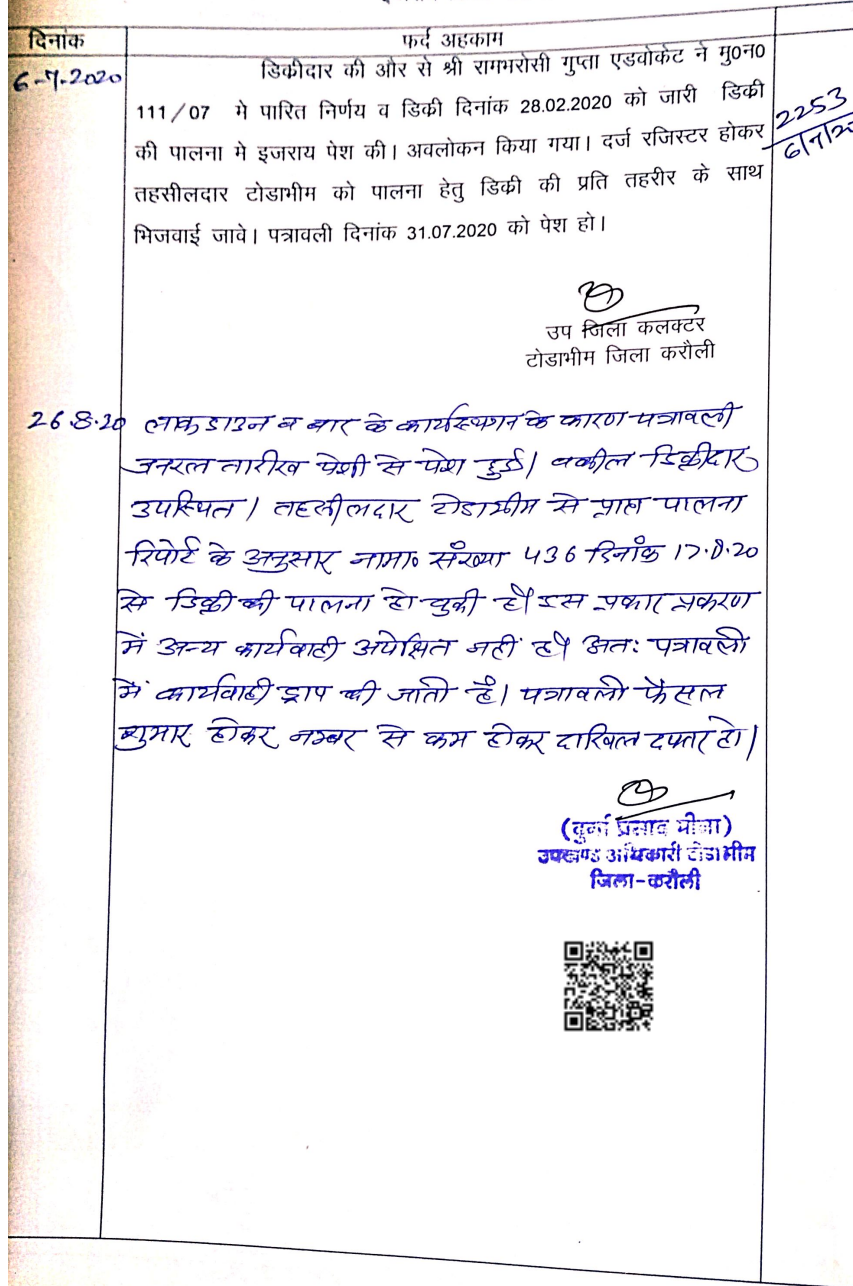 दिनांक
फर्द अहकाम
6-7-2020
डिकीदार की और से श्री रामभरोसी गुप्ता एडवोकेट ने मु0न0
111/07 मे पारित निर्णय व डिकी दिनांक 28.02.2020 को जारी डिकी
की पालना मे इजराय पेश की। अवलोकन किया गया। दर्ज रजिस्टर होकर
तहसीलदार टोडाभीम को पालना हेतु डिकी की प्रति तहरीर के साथ
भिजवाई जावे। पत्रावली दिनांक 31.07.2020 को पेश हो।
2253
6/7/20
उप जिला कलक्टर
टोडाभीम जिला करौली
26.8.20 लाकडाउन व बार के कार्यस्थगन के कारण पत्रावली
जनरल तारीख पेशी से पेश हुई। वकील डिक्रीदार
उपस्थित। तहसीलदार टोडाभीम से प्राप्त पालना
रिपोर्ट के अनुसार नामा० संख्या 436 दिनांक 17.8.20
से डिक्री की पालना हो चुकी है। इस प्रकार प्रकरण
में अन्य कार्यवाही अपेक्षित नहीं है। अतः पत्रावली
में कार्यवाही ड्राप की जाती है। पत्रावली फैसल
शुमार होकर नम्बर से कम होकर दाखिल दफ्तर हो।
(दुर्गा प्रसाद मीना)
उपखण्ड अधिकारी टोडाभीम
जिला-करौली